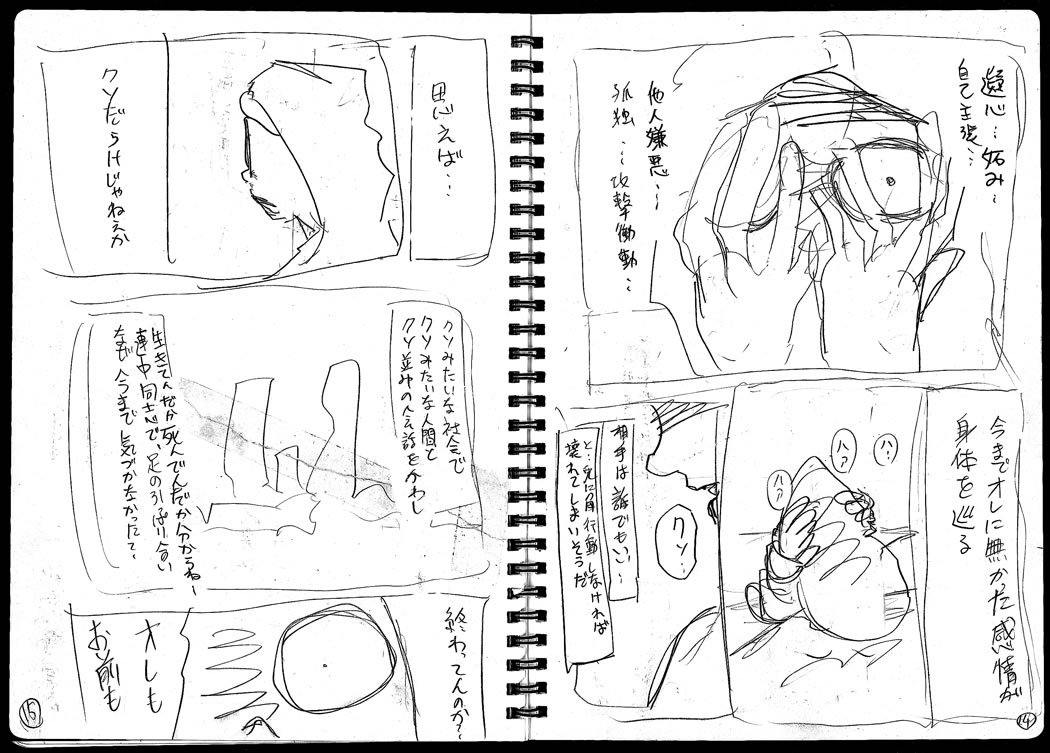 凝心…妬み〜
自己主張…
他人嫌悪……
孤独…攻撃衝動…
今までオレに無かった感情が
身体を巡る
ハ…
ハ?
ハ?
相手は誰でもいい…
クソ…
と…兎に角行動しなければ
壊れてしまいそうだ
14
思えば…
クソだらけじゃねえか
クソみたいな社会で
クソみたいな人間と
クソ並みの会話をかわし
生きてんだか死んでんだか分からねー
連中同志で、足の引っぱり合い
なぜ今まで気づかなかったて〜
終わってんのか?
オレも
お前も
15